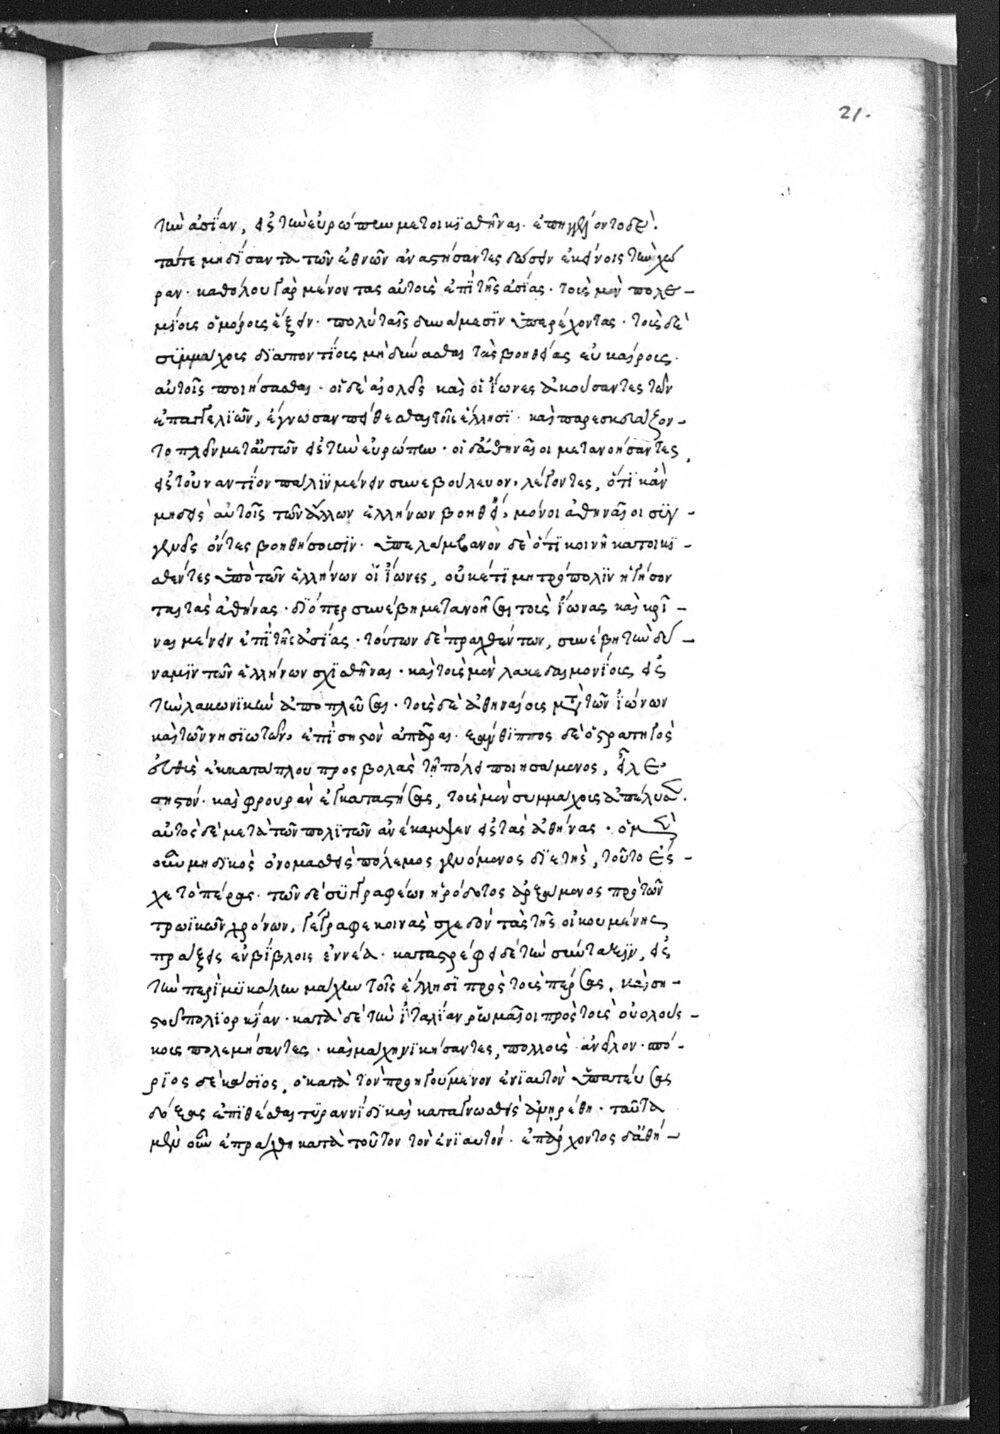 21.
τὴν ἀσίαν, εἰς τὴν εὐρώπην μετοικϊσθῆναι. ἐπηγγέλλοντο δὲ
τά τε μηδϊσαντα τῶν ἐθνῶν ἀναστήσαντες δώσειν ἐκείνοις τὴν χώ
ραν. καθόλου γὰρ μένοντας αὐτοὺς ἐπὶ τῆς ἀσίας. τοὺς μὲν πολε-
μίους ὁμόρους ἕξειν. πολὺ ταῖς δυνάμεσϊν ὑπερέχοντας. τοὺς δὲ
συμμάχους διαποντϊους μὴ δύνασθαι τὰς βοηθείας εὐκαίρους
αὐτοῖς ποιήσασθαι. οἱ δὲ αἰολεῖς καὶ οἱ ἴωνες ἀκούσαντες τῶν
ἐπαγγελϊῶν, ἔγνωσαν πείθεσθαι τοῖς ἕλλησϊ. καὶ παρεσκευάζον-
το πλεῖν μετ' αὐτῶν εἰς τὴν εὐρώπην. οἱ δ' ἀθηναῖοι μετανοήσαντες
εἰς τοὐναντίον πάλϊν μένειν συνεβούλευον, λέγοντες, ὅτϊ κἂν
μηδεὶς αὐτοῖς τῶν ἄλλων ἑλλήνων βοηθῇ, μόνοι ἀθηναῖοι συγ-
γενεῖς ὄντες βοηθήσουσϊν. ὑπελάμβανον δὲ ὅτϊ κοινῇ κατοικϊ-
σθέντες ὑπὸ τῶν ἑλλήνων οἱ ἴωνες, οὐκέτϊ μητρόπολϊν ἡγήσον
ται τὰς ἀθήνας. διόπερ συνέβη μετανοῆσαι τοὺς ἴωνας καὶ κρῖ-
ναι μένειν ἐπὶ τῆς ἀσίας. τούτων δὲ πραχθέντων, συνέβη τὴν δύ-
ναμϊν τῶν ἑλλήνων σχϊσθῆναι. καὶ τοὺς μὲν λακεδαιμονίους εἰς
τὴν λακωνικὴν ἀποπλεῦσαι. τοὺς δὲ ἀθηναίους μετὰ τῶν ἰώνων
καὶ τῶν νησϊωτῶν, ἐπὶ σηστὸν ἀπᾶραι. ξάνθϊππος δὲ ὁ στρατηγὸς
εὐθὺς ἐκ κατάπλου προσβολὰς τῇ πόλει ποιησάμενος, εἷλε
σηστόν. καὶ φρουρὰν ἐγκαταστήσας, τοὺς μὲν συμμάχους ἀπέλυσεν.
αὐτὸς δὲ μετὰ τῶν πολϊτῶν ἀνέκαμψεν εἰς τὰς ἀθήνας. ὁ μὲν
οὖν μηδϊκὸς ὀνομασθεὶς πόλεμος γενόμενος διετὴς, τοῦτο ἔσ-
χε τὸ πέρας. τῶν δὲ συγγραφέων ἡρόδοτος ἀρξάμενος πρὸ τῶν
τρωϊκῶν χρόνων, γέγραφε κοινὰς σχεδόν τὰς τῆς οἰκουμένης
πράξεις ἐν βίβλοις ἐννέα. καταστρέφει δὲ τὴν σύνταξϊν, εἰς
τὴν περὶ μυκάλην μάχην τοῖς ἕλλησϊ πρὸς τοὺς πέρσας, καὶ ση-
στοῦ πολϊορκίαν. κατὰ δὲ τὴν ἰταλίαν ῥωμαῖοι πρὸς τοὺς οὐολούσ-
κους πολεμήσαντες. καὶ μάχῃ νϊκήσαντες, πολλοὺς ἀνεῖλον. σπό-
ρϊος δὲ κάσϊος, ὁ κατὰ τὸν προηγούμενον ἐνϊαυτὸν ὑπατεύσας
δόξας ἐπϊθέσθαι τυραννίδϊ καὶ καταγνωσθεὶς ἀνῃρέθη. ταῦτα
μὲν οὖν ἐπράχθη κατὰ τοῦτον τὸν ἐνϊαυτόν. ἐπ' ἄρχοντος δ' ἀθή-